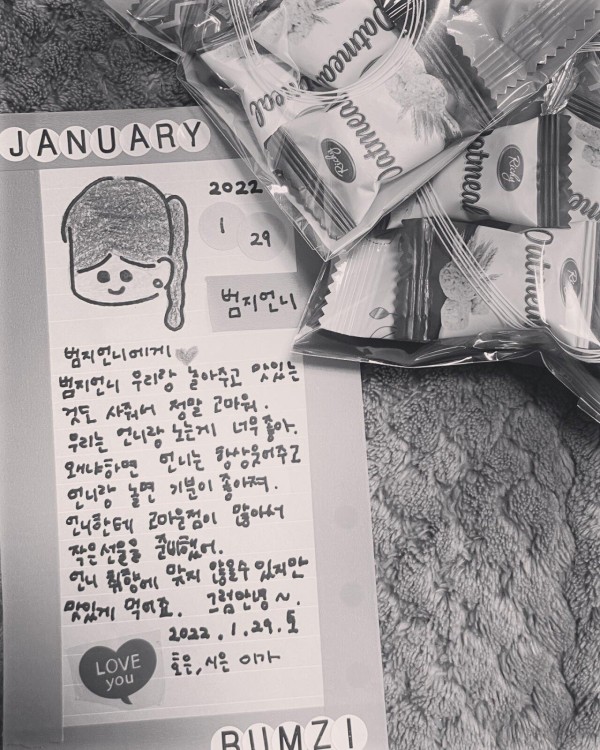 JANUARY
2022
1
29
범지언니
범지언니에게
범지언니 우리랑 놀아주고 맛있는
것도 사줘서 정말 고마워.
우리는 언니랑 노는게 너무좋아.
왜냐하면 언니는 항상웃어주고
언니랑 놀면 기분이 좋아져.
언니한테 고마운점이 많아서
작은선물을 준비했어.
언니 취향에 맞지 않을수 있지만
맛있게 먹어요. 그럼안녕~.
2022.1.29.토
LOVE
you
호은,시은 이가
RUMZI
Oatmeal
Oatmeal
Richy
Oatmeal
Richy
Oatmeal